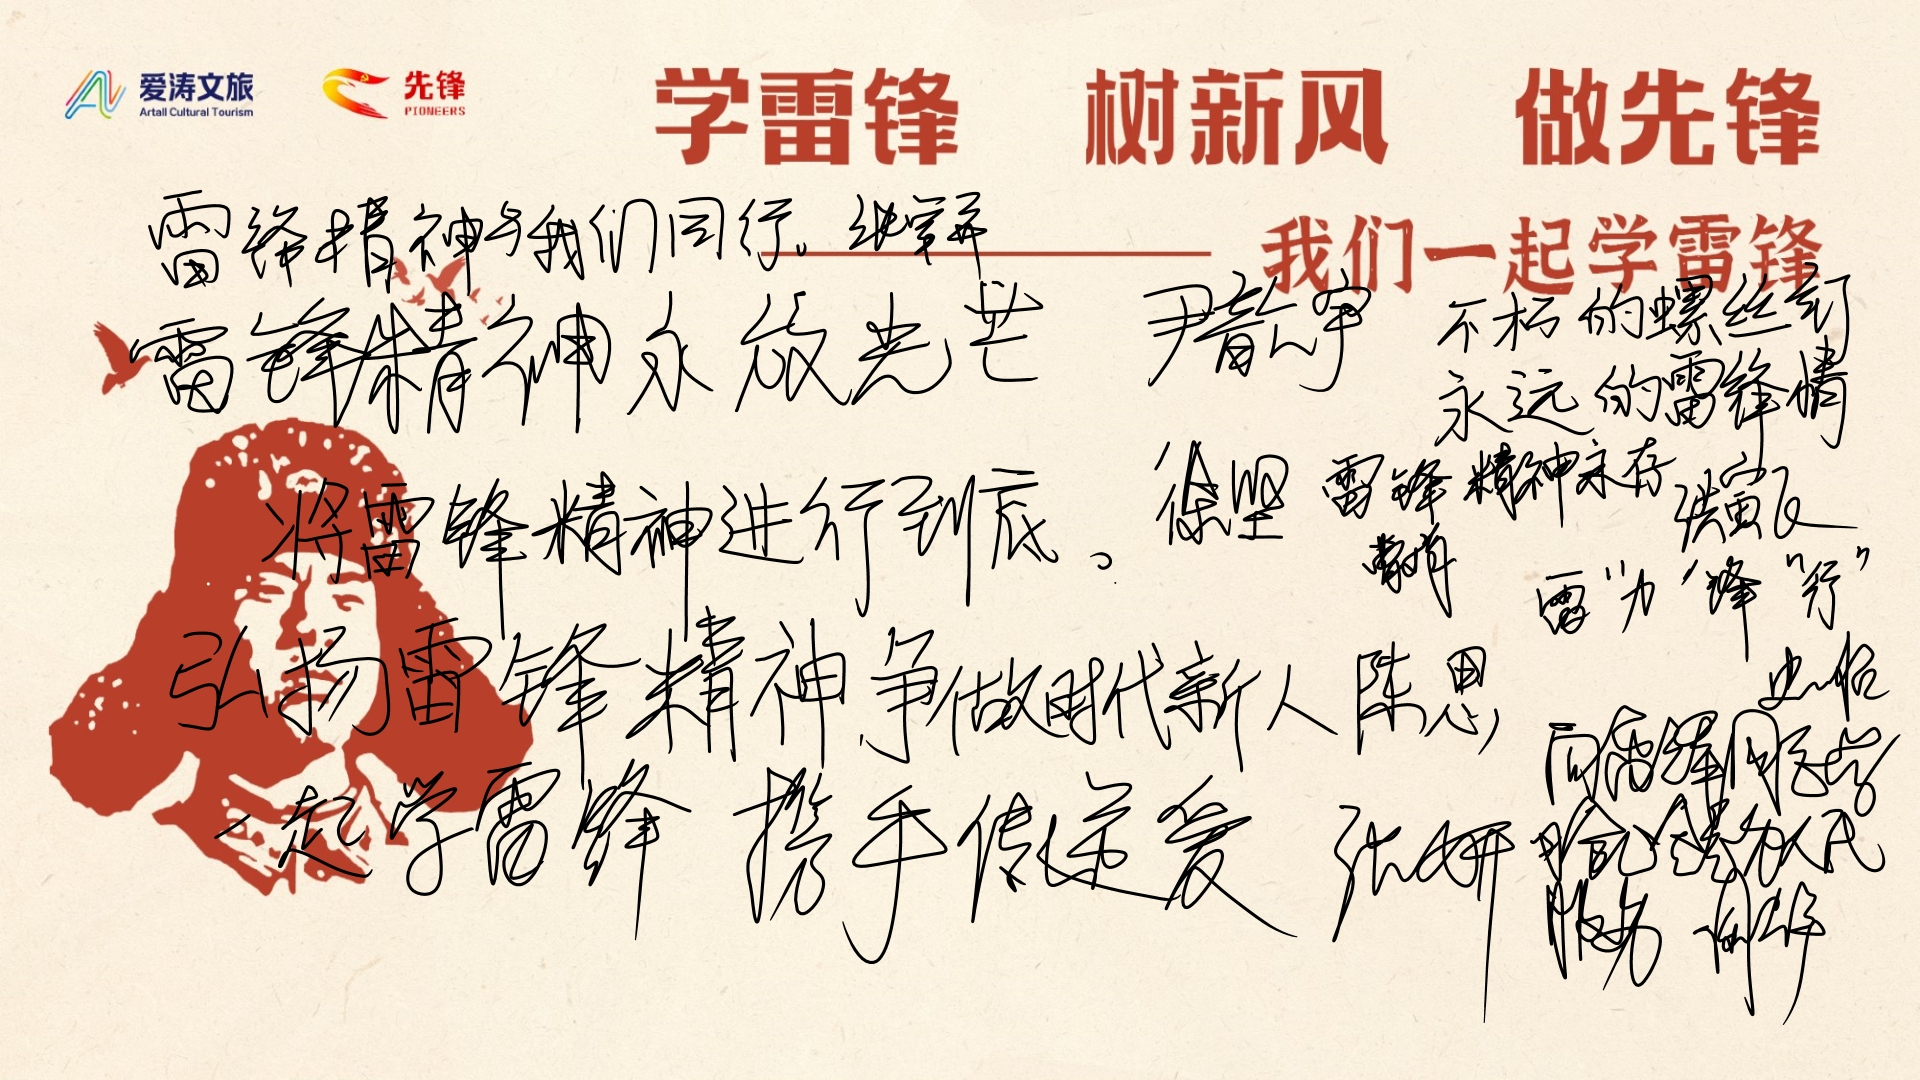 爱涛文旅
Artall Cultural Tourism
先锋
PIONEERS
学雷锋 树新风 做先锋
我们一起学雷锋
雷锋精神与我们同行。
雷锋精神永放光芒
不朽的螺丝钉
永远的雷锋情
将雷锋精神进行到底。 徐坚
雷锋精神永存
雷"力"锋"行"
弘扬雷锋精神争做时代新人 陈思
一起学雷锋 携手传递爱 张妍
向雷锋同志学
为人民
服务